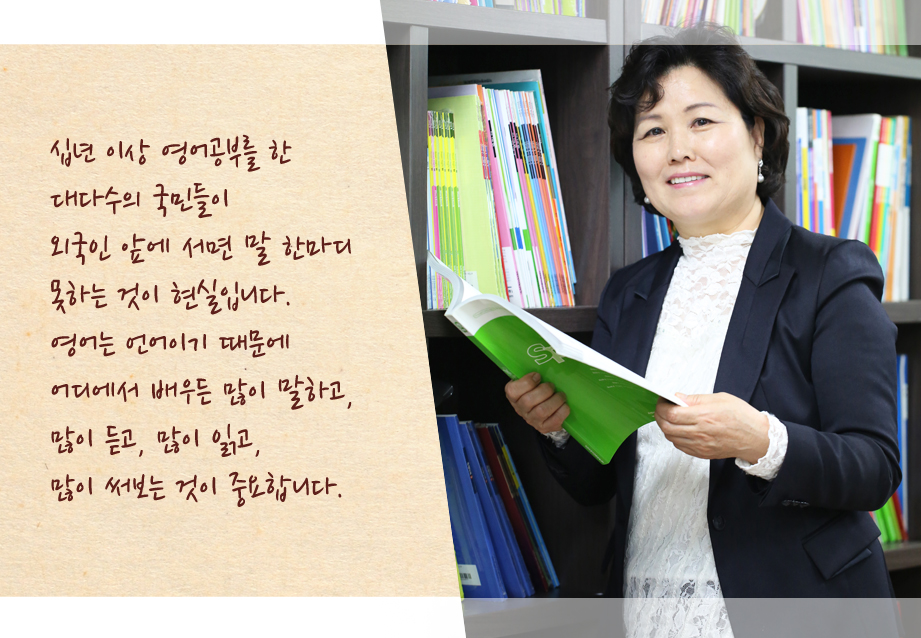 십년 이상 영어공부를 한
대다수의 국민들이
외국인 앞에 서면 말 한마디
못하는 것이 현실입니다.
영어는 언어이기 때문에
어디에서 배우든 많이 말하고,
많이 듣고, 많이 읽고,
많이 써보는 것이 중요합니다.